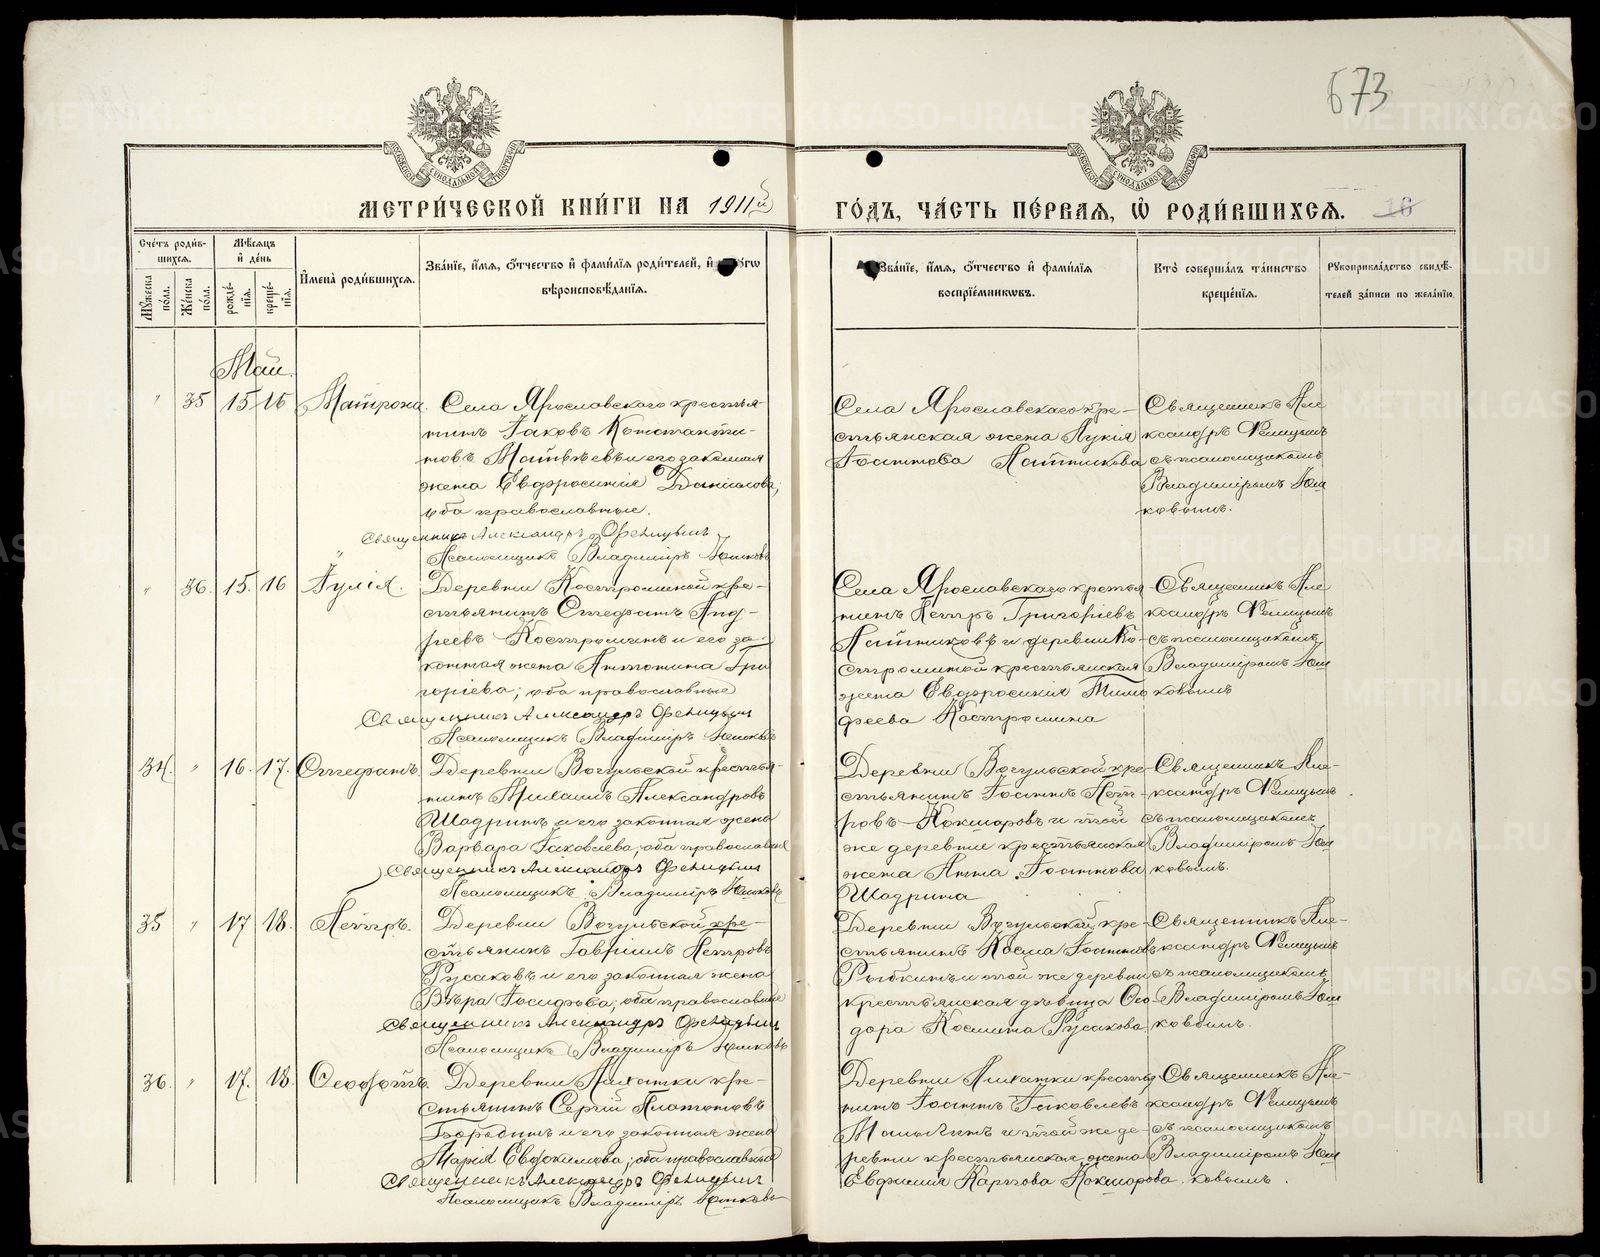 673
МЕТРИ́ЧЕСКОЙ КНИ́ГИ НА 1911й ГО́ДЪ, ЧА́СТЬ ПЕ́РВАЯ, Ѡ РОДИ́ВШИХСЯ. 16
Сче́тъ роди́в-
шихся.
Мѣ́сяцъ
и де́нь
Му́жеска по́ла.
Же́нска по́ла.
рожде́-
нїя.
креще́-
нїя.
Имена̀ роди́вшихся.
Зва́нїе, и́мя, о́тчество и фами́лїя роди́телей, и
вѣроисповѣ́данїя.
Зва́нїе, и́мя, о́тчество и фами́лїя
воспрїе́мниковъ.
Кто̀ соверша́лъ та́инство
креще́нїя.
Рукоприкла́дство свидѣ́-
телей за́писи по жела́нїю.
Май.
" 35 15 15 Матрона.
Села Ярославскаго кресть-
янинъ Іаковъ Константи-
новъ Матвѣевъ и его законная
жена Евдросинія Даніилова,
оба православные.
Священникъ Александръ Фелицынъ
Псаломщикъ Владиміръ Юшковъ
Села Ярославскаго кре-
стьянская жена Лукія
Іоаннова Лаптикова
Священникъ Але-
ксандръ Фелицынъ
съ псаломщикомъ
Владиміромъ Юш
ковымъ.
" 36. 15. 16 Іулія.
Деревни Костроминой кре-
стьянинъ Стефанъ Анд-
реевъ Костроминъ и его за-
конная жена Антонина Гри
горіева; оба православные
Священникъ Александръ Фелицынъ
Псаломщикъ Владиміръ Юшковъ
Села Ярославскаго крестья
нинъ Петръ Григоріевъ
Лаптиковъ и деревни Ко-
строминой крестьянская
жена Евдросинія Тимо
феева Костромина
Священникъ Але-
ксандръ Фелицынъ
съ псаломщикомъ
Владиміромъ Юш
ковымъ
34. " 16. 17. Стефанъ.
Деревни Вогульской крестья-
нинъ Михаилъ Александровъ
Шадринъ и его законная жена
Варвара Іаковлева; оба православные
Священникъ Александръ Фелицынъ
Псаломщикъ Владиміръ Юшковъ
Деревни Вогульской кре-
стьянинъ Іоаннъ Пет-
ровъ Кокшаровъ и той
же деревни крестьянская
жена Анна Іоаннова
Шадрина
Священникъ Але-
ксандръ Фелицынъ
съ псаломщикомъ
Владиміромъ Юш
ковымъ.
35 " 17 18. Петръ.
Деревни Вогульской кре-
стьянинъ Гавріилъ Петровъ
Русаковъ и его законная жена
Вѣра Іосифова; оба православные
Священникъ Александръ Фелицынъ
Псаломщикъ Владиміръ Юшковъ
Деревни Вогульской кре-
стьянинъ Косма Іоанновъ
Рыбкинъ и той же деревни
крестьянская дѣвица Ѳео-
дора Космина Русакова
Священникъ Але-
ксандръ Фелицынъ
съ псаломщикомъ
Владиміромъ Юш
ковымъ.
36. " 17. 18. Ѳеодотъ.
Деревни кре-
стьянинъ Сергій Платоновъ
Бородинъ и его законная жена
Марія Евдокимова; оба православные
Священникъ Александръ Фелицынъ
Псаломщикъ Владиміръ Юшковъ
Деревни крестья
нинъ Іоаннъ Іаковлевъ
и той же де-
ревни крестьянская жена
Евфимія Карпова Кокшарова.
Священникъ Але-
ксандръ Фелицынъ
съ псаломщикомъ
Владиміромъ Юш
ковымъ.
METRIKI.GASO-URAL.RU